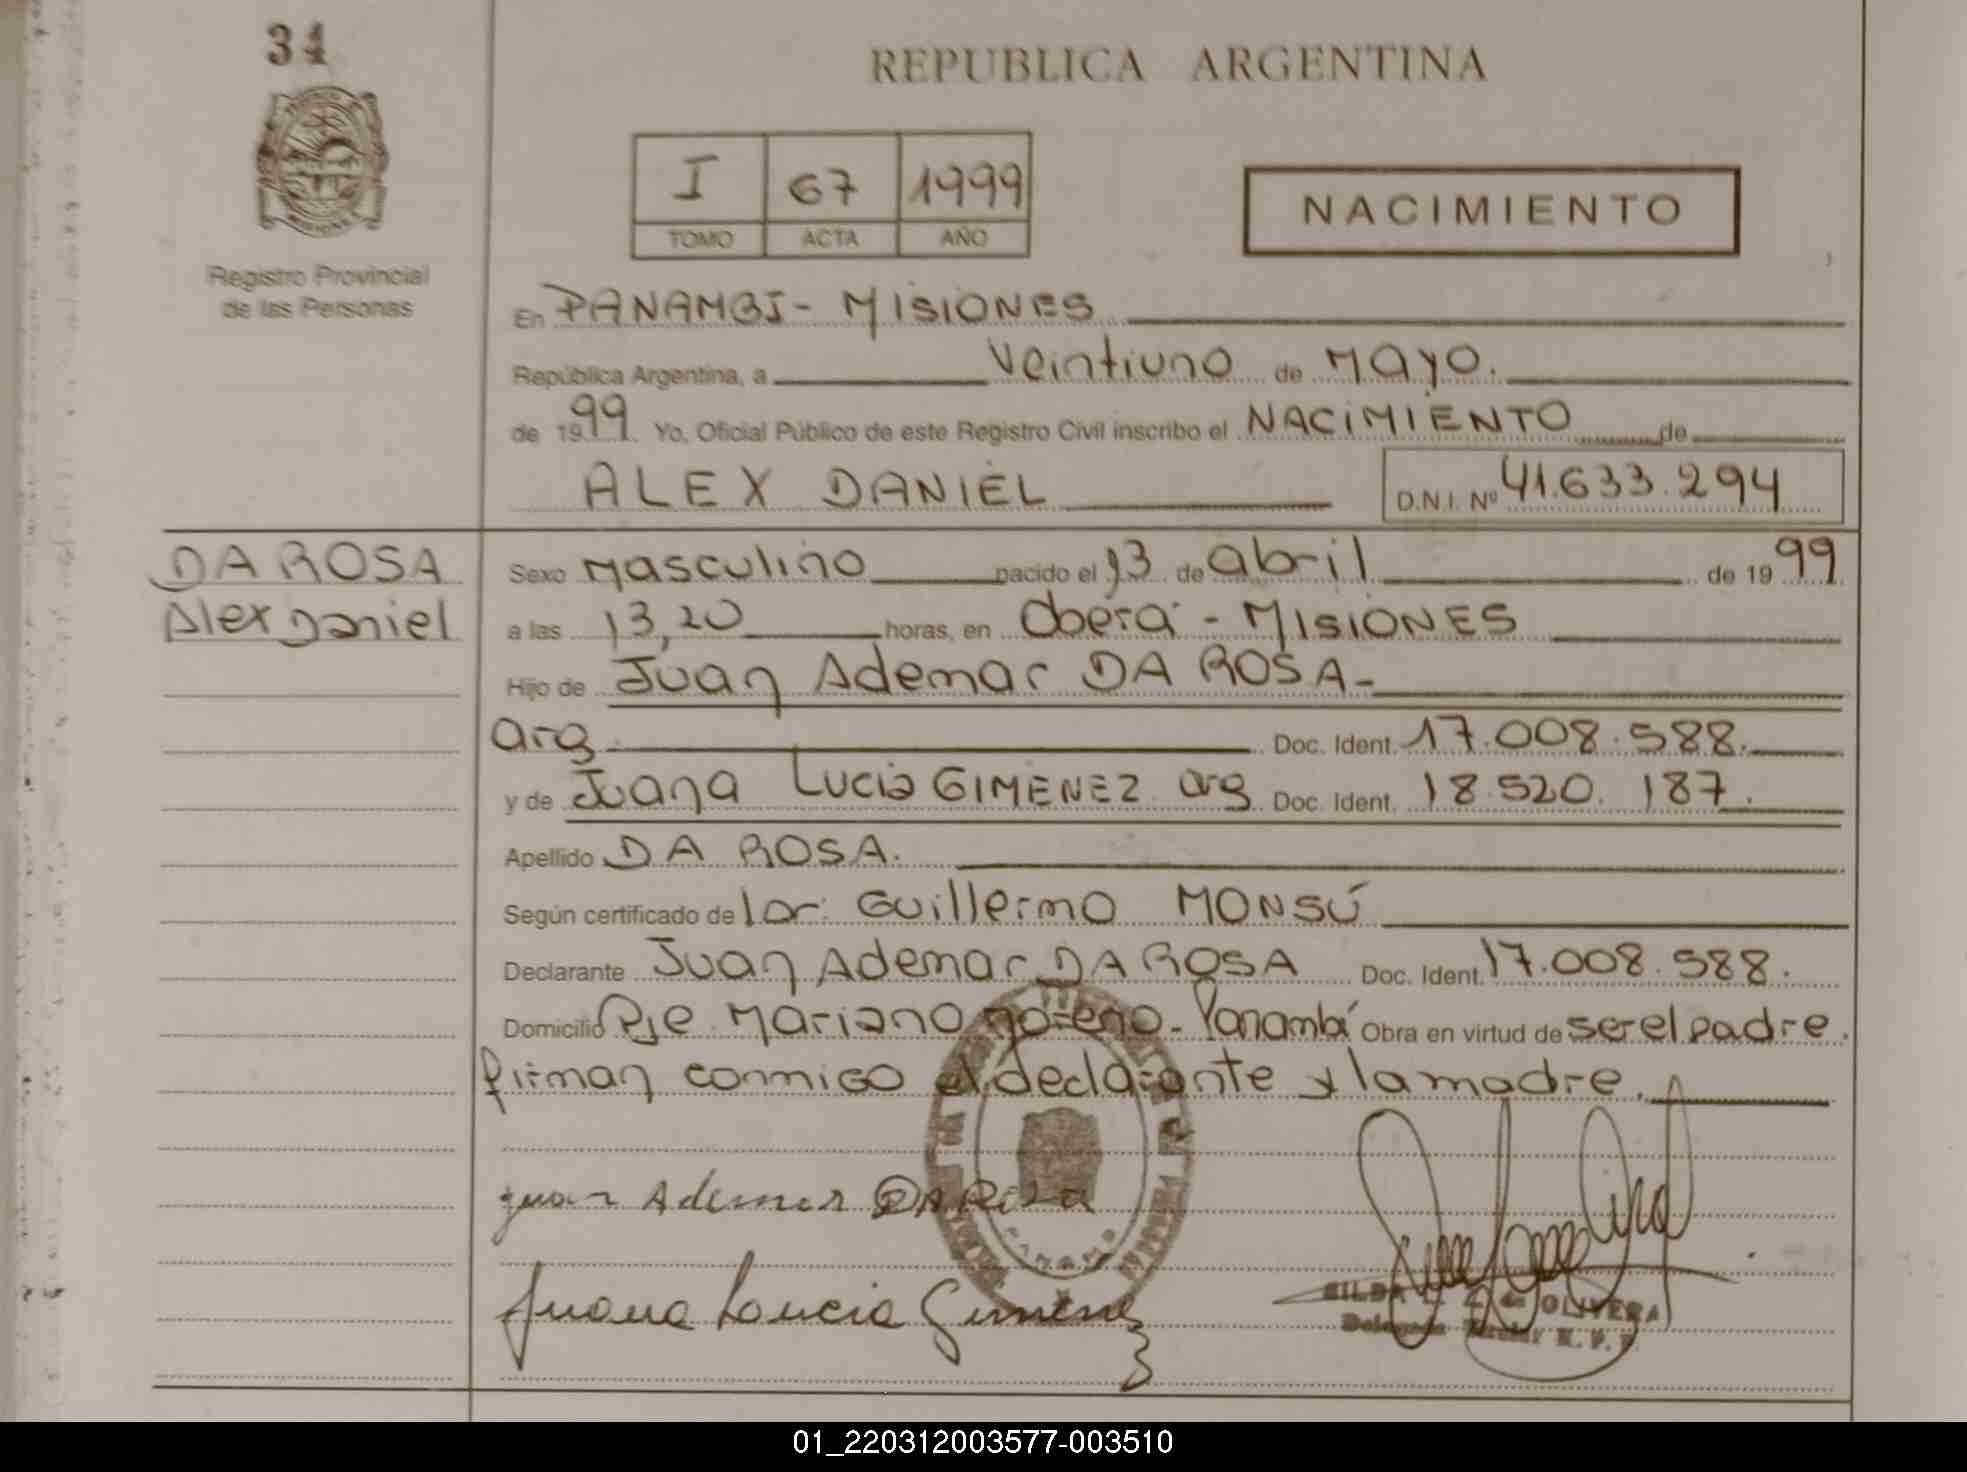 34
REPUBLICA ARGENTINA
MISIONES
Registro Provincial
de las Personas
I 67 1999
TOMO ACTA AÑO
NACIMIENTO
En PANAMBI - MISIONES
República Argentina, a veintiuno de MAYO.
de 1999 Yo, Oficial Público de este Registro Civil inscribo el NACIMIENTO de
ALEX DANIEL D.N.I. Nº 41.633.294
DA ROSA
Alex Daniel
Sexo Masculino nacido el 13 de abril de 1999
a las 13,20 horas, en Oberá - MISIONES
Hijo de Juan Ademar DA ROSA-
arg Doc. Ident. 17.008.588.
y de Juana Lucia GIMENEZ arg Doc. Ident. 18.520.187.
Apellido DA ROSA.
Según certificado de Guillermo MONSÚ
Declarante Juan Ademar DA ROSA Doc. Ident. 17.008.588.
Domicilio Pje Mariano Moreno - Panambí Obra en virtud de ser el padre.
firman conmigo el declarante y la madre.
Juan Ademar DA ROSA
Juana Lucia Gimenez
OLIVERA
01_220312003577-003510